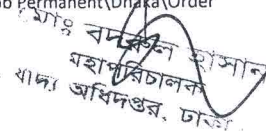 b Permanent\Dhaka\Order
মোঃ বদরুল হাসান
মহাপরিচালক
খাদ্য অধিদপ্তর, ঢাকা